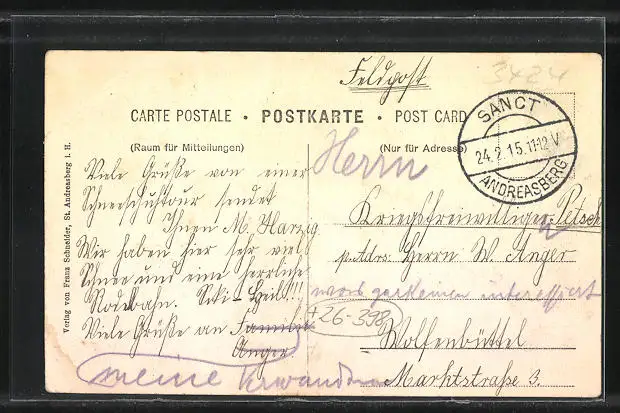 3424
Feldpost
CARTE POSTALE • POSTKARTE • POST CARD
SANCT
24.2.15.11-12 V
ANDREASBERG
(Raum für Mitteilungen)
(Nur für Adresse)
Herrn
Viele Grüße von einer
Schneeschuhtour sendet
Ihnen M. Harzig
Wir haben hier sehr viel
Schnee und eine herrliche
Rodelbahn. Ski Heil!!!
Viele Grüße an Familie
Anger
meine Verwandten
Kriegsfreiwilliger Petsch
p. Adrs. Herrn W. Anger
was garkeinen interessiert
+26-398
Wolfenbüttel
Marktstraße 3.
Verlag von Franz Schneider, St. Andreasberg i. H.